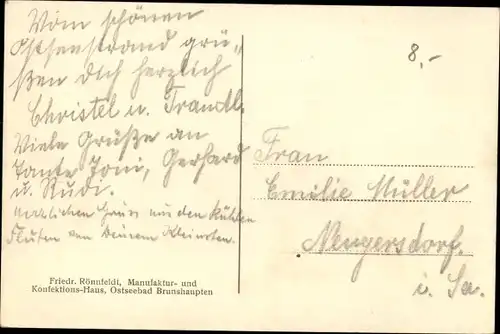 Vom schönen
Ostseestrand grü-
ßen Dich herzlich
Christel u. Trandl.
Viele Grüße an
Tante Toni, Gerhard
u. Rudi.
Herzlichen Gruss aus den kühlen
Fluten von Deinem Kleinsten.
Friedr. Rönnfeldt, Manufaktur- und
Konfektions-Haus, Ostseebad Brunshaupten
8,-
Frau
Emilie Müller
Neugersdorf.
i. Sa.